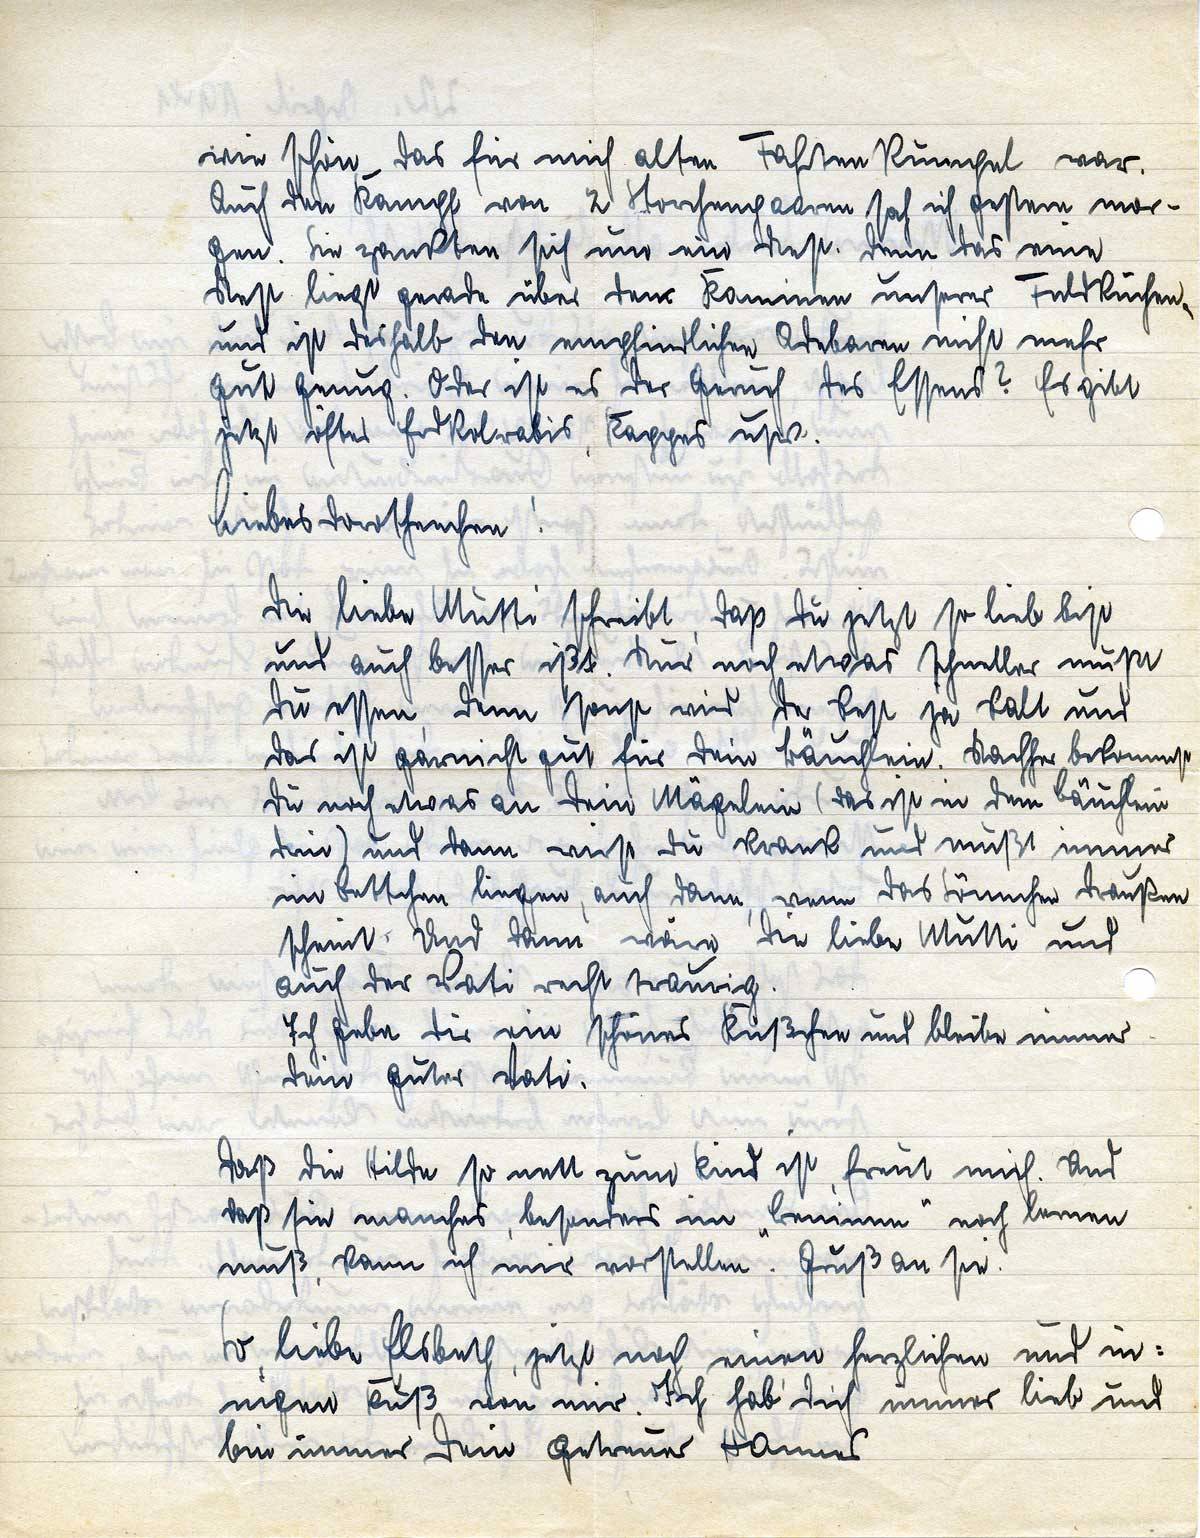 wie schön das für mich alten Fahrten Kumpel war.
Auch den Kampf von 2 Storchenpaaren sah ich gestern mor-
gen. Sie zankten sich um ein Nest. Denn das eine
Nest liegt gerade über dem Kaminen unserer Feldküchen
und ist deshalb den empfindlichen Adebaren nicht mehr
gut genug. Oder ist es der Geruch des Essens? Es gibt
jetzt öfter Erdkolrabis, Kappes usw.
Liebes Dorothenchen!
Die liebe Mutti schreibt, daß Du jetzt so lieb bist
und auch besser ißt. Nur noch etwas schneller mußt
Du essen, denn sonst wird der Rest ja kalt und
das ist garnicht gut für Dein Bäuchlein. Nachher bekommst
Du noch etwas an Dein Mägelein (das ist in dem Bäuchlein
drin) und dann wirst Du krank und mußt immer
im Bettchen liegen, auch dann, wenn das Sönnchen draußen
scheint. Und dann wäre die liebe Mutti und
auch der Vati recht traurig.
Ich gebe Dir ein schönes Küßchen und bleibe immer
Dein guter Vati.
Daß die Hilde so nett zum Kind ist, freut mich. Und
daß sie manches, besonders im „Benimm“ noch lernen
muß, kann ich mir vorstellen. Gruß an sie.
So, liebe Elsbeth, jetzt noch einen herzlichen und in=
nigen Kuß von mir. Ich hab' Dich immer lieb und
bin immer Dein getreuer Hannes